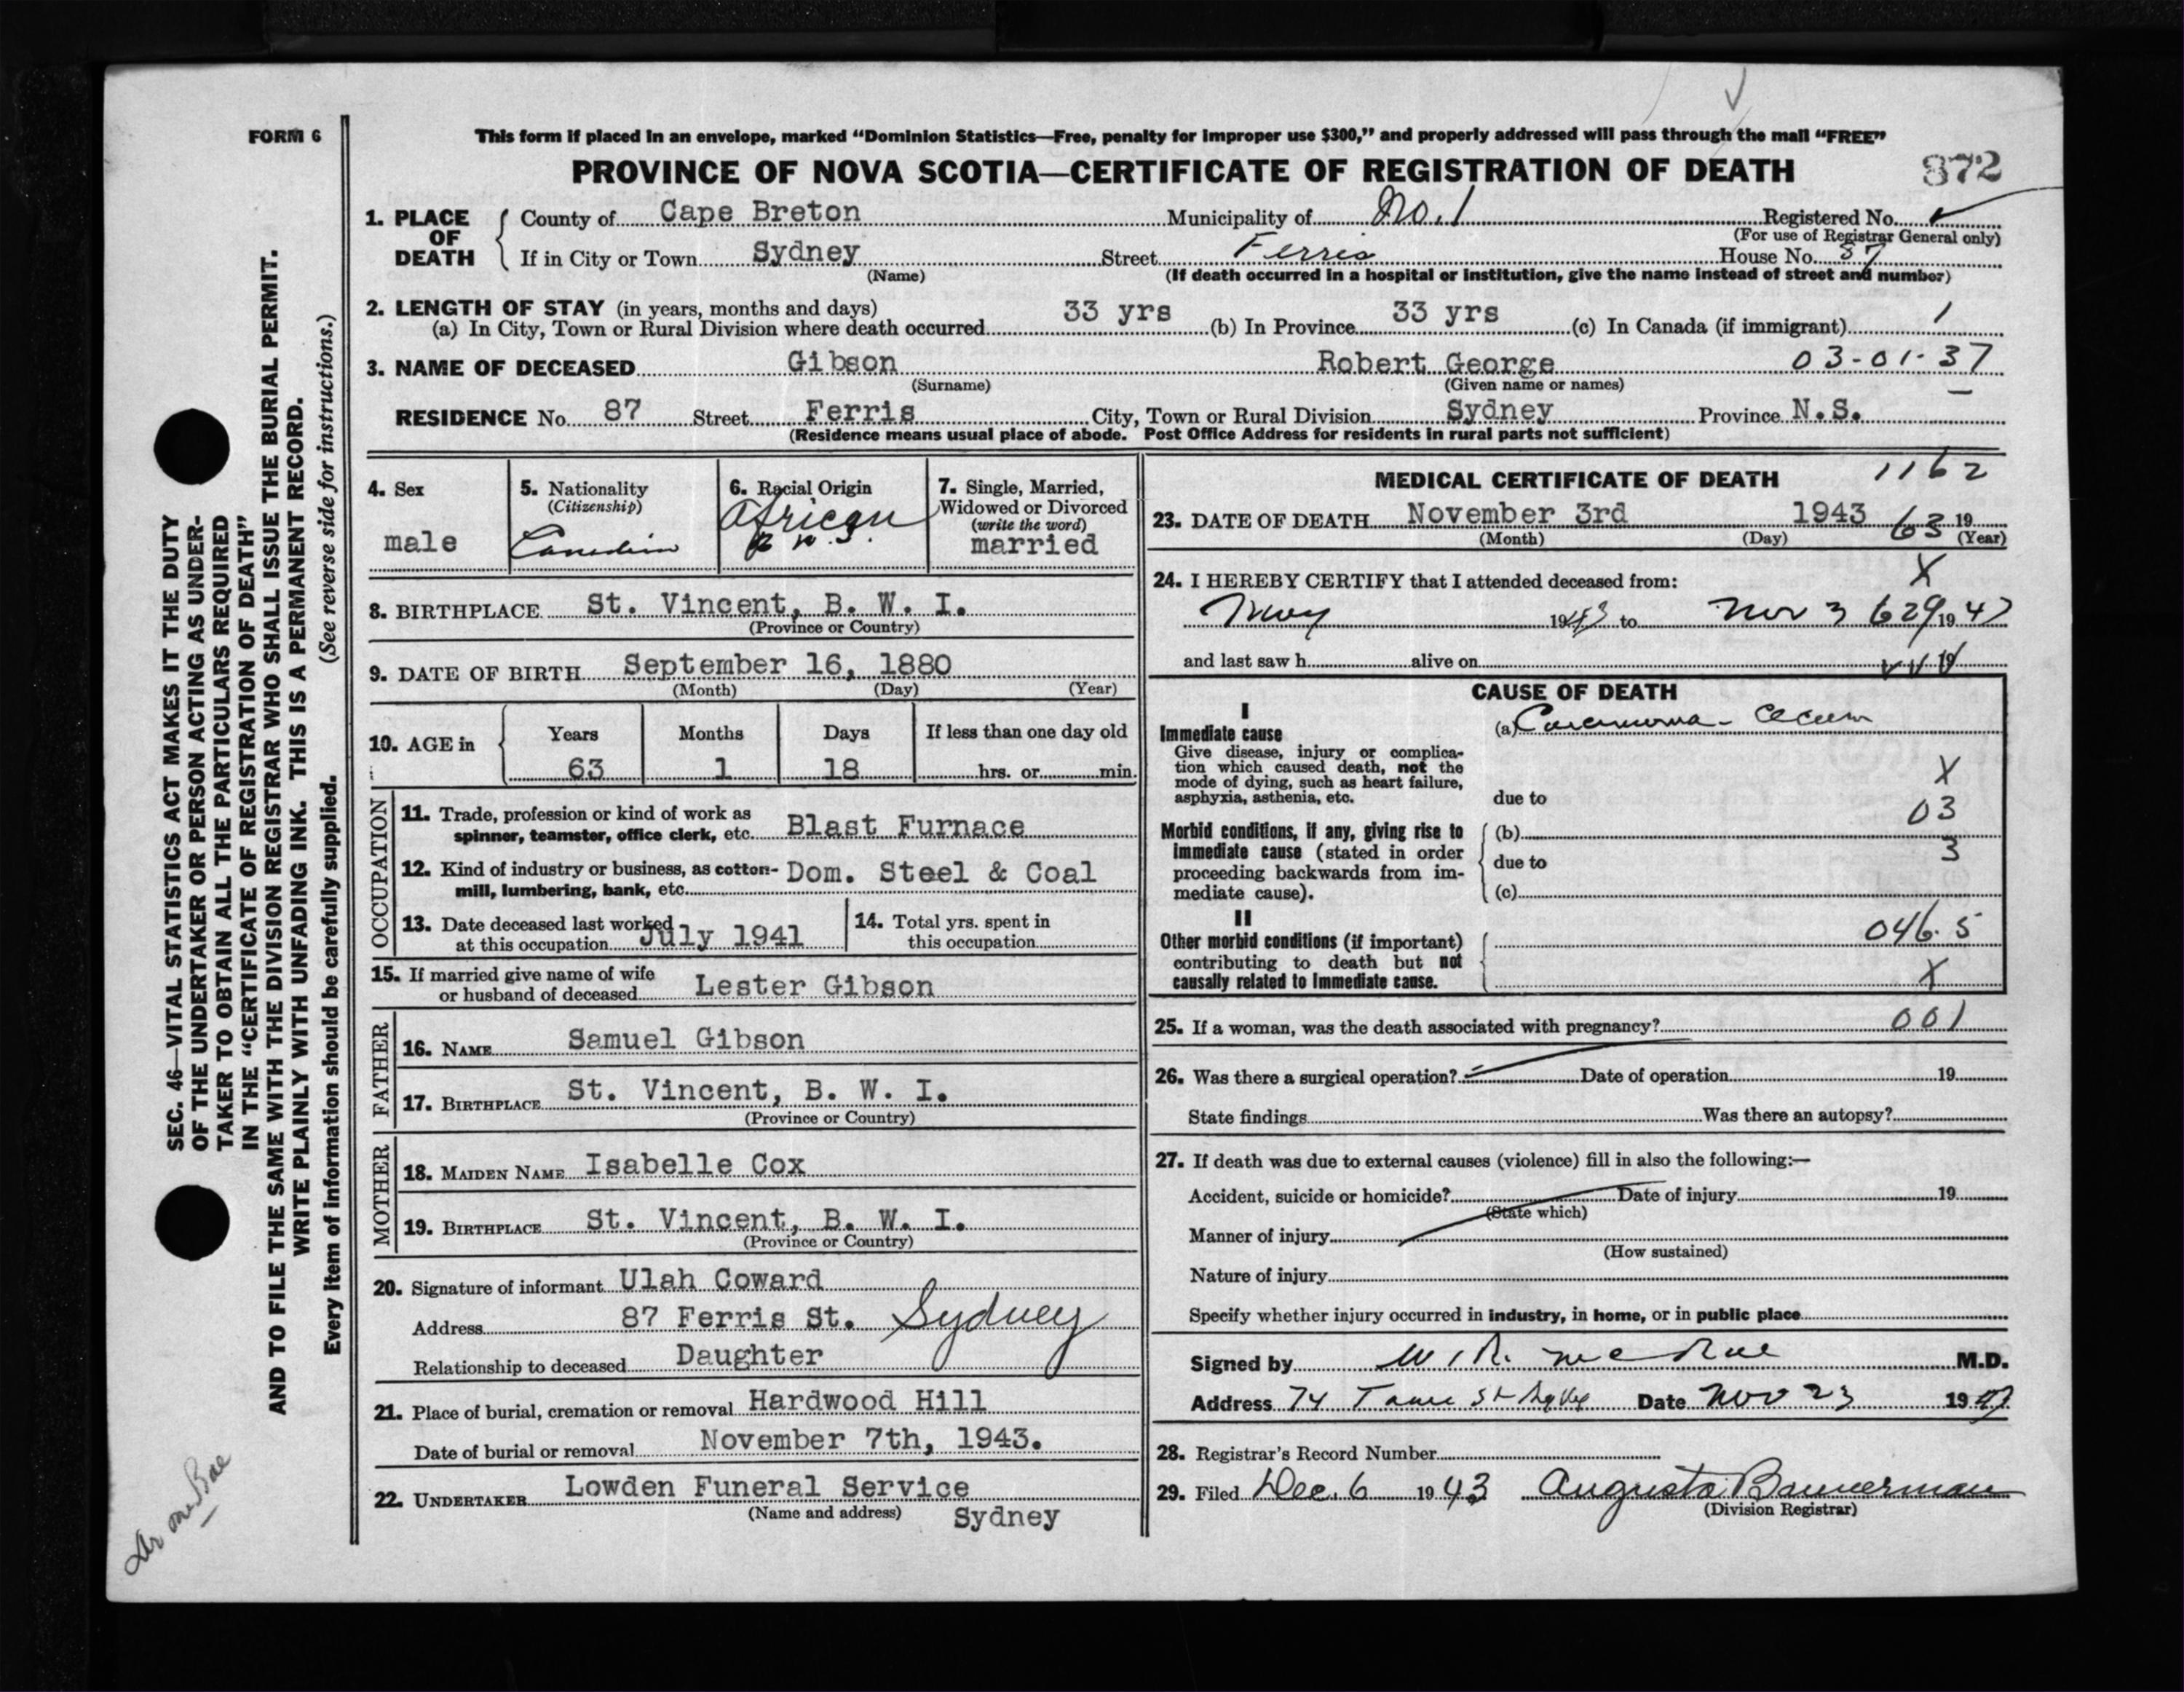 FORM 6
This form if placed in an envelope, marked “Dominion Statistics—Free, penalty for improper use $300,” and properly addressed will pass through the mail “FREE”
PROVINCE OF NOVA SCOTIA—CERTIFICATE OF REGISTRATION OF DEATH
872
1. PLACE OF DEATH
County of Cape Breton Municipality of No. 1 Registered No.
(For use of Registrar General only)
If in City or Town Sydney Street Ferris House No. 87
(Name) (If death occurred in a hospital or institution, give the name instead of street and number)
2. LENGTH OF STAY (in years, months and days)
(a) In City, Town or Rural Division where death occurred 33 yrs (b) In Province 33 yrs (c) In Canada (if immigrant) /
3. NAME OF DECEASED Gibson Robert George 03-01-37
(Surname) (Given name or names)
RESIDENCE No. 87 Street Ferris City, Town or Rural Division Sydney Province N.S.
(Residence means usual place of abode. Post Office Address for residents in rural parts not sufficient)
4. Sex
male
5. Nationality
(Citizenship)
Canadian
6. Racial Origin
African
7. Single, Married,
Widowed or Divorced
(write the word)
married
8. BIRTHPLACE St. Vincent, B. W. I.
(Province or Country)
9. DATE OF BIRTH September 16, 1880
(Month) (Day) (Year)
10. AGE in Years Months Days If less than one day old
63 1 18 hrs. or min.
OCCUPATION
11. Trade, profession or kind of work as
spinner, teamster, office clerk, etc. Blast Furnace
12. Kind of industry or business, as cotton-
mill, lumbering, bank, etc. Dom. Steel & Coal
13. Date deceased last worked
at this occupation July 1941
14. Total yrs. spent in
this occupation
15. If married give name of wife
or husband of deceased Lester Gibson
FATHER
16. NAME Samuel Gibson
17. BIRTHPLACE St. Vincent, B. W. I.
(Province or Country)
MOTHER
18. MAIDEN NAME Isabelle Cox
19. BIRTHPLACE St. Vincent, B. W. I.
(Province or Country)
20. Signature of informant Ulah Coward
Address 87 Ferris St. Sydney
Relationship to deceased Daughter
21. Place of burial, cremation or removal Hardwood Hill
Date of burial or removal November 7th, 1943.
22. UNDERTAKER Lowden Funeral Service
(Name and address) Sydney
MEDICAL CERTIFICATE OF DEATH 1162
23. DATE OF DEATH November 3rd 1943 63 19
(Month) (Day) (Year)
24. I HEREBY CERTIFY that I attended deceased from: X
1943 to Nov 3 629 1943
and last saw h alive on 19
CAUSE OF DEATH
I
Immediate cause
Give disease, injury or complica-
tion which caused death, not the
mode of dying, such as heart failure,
asphyxia, asthenia, etc.
(a) Carcinoma - Cecum
X
due to
03
Morbid conditions, if any, giving rise to
immediate cause (stated in order
proceeding backwards from im-
mediate cause).
(b)
due to 3
(c)
II
Other morbid conditions (if important)
contributing to death but not
causally related to immediate cause.
046.5
X
25. If a woman, was the death associated with pregnancy? 001
26. Was there a surgical operation? Date of operation 19
State findings Was there an autopsy?
27. If death was due to external causes (violence) fill in also the following:—
Accident, suicide or homicide? Date of injury 19
(State which)
Manner of injury
(How sustained)
Nature of injury
Specify whether injury occurred in industry, in home, or in public place
Signed by W. R. McRae M.D.
Address 74 St Date Nov 23 1943
28. Registrar's Record Number
29. Filed Dec. 6 1943 Augusta Bannerman
(Division Registrar)
SEC. 46—VITAL STATISTICS ACT MAKES IT THE DUTY
OF THE UNDERTAKER OR PERSON ACTING AS UNDER-
TAKER TO OBTAIN ALL THE PARTICULARS REQUIRED
IN THE “CERTIFICATE OF REGISTRATION OF DEATH”
AND TO FILE THE SAME WITH THE DIVISION REGISTRAR WHO SHALL ISSUE THE BURIAL PERMIT.
WRITE PLAINLY WITH UNFADING INK. THIS IS A PERMANENT RECORD.
Every item of information should be carefully supplied. (See reverse side for instructions.)
Dr McRae